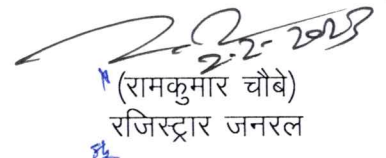 2-2-2023
(रामकुमार चौबे)
रजिस्ट्रार जनरल